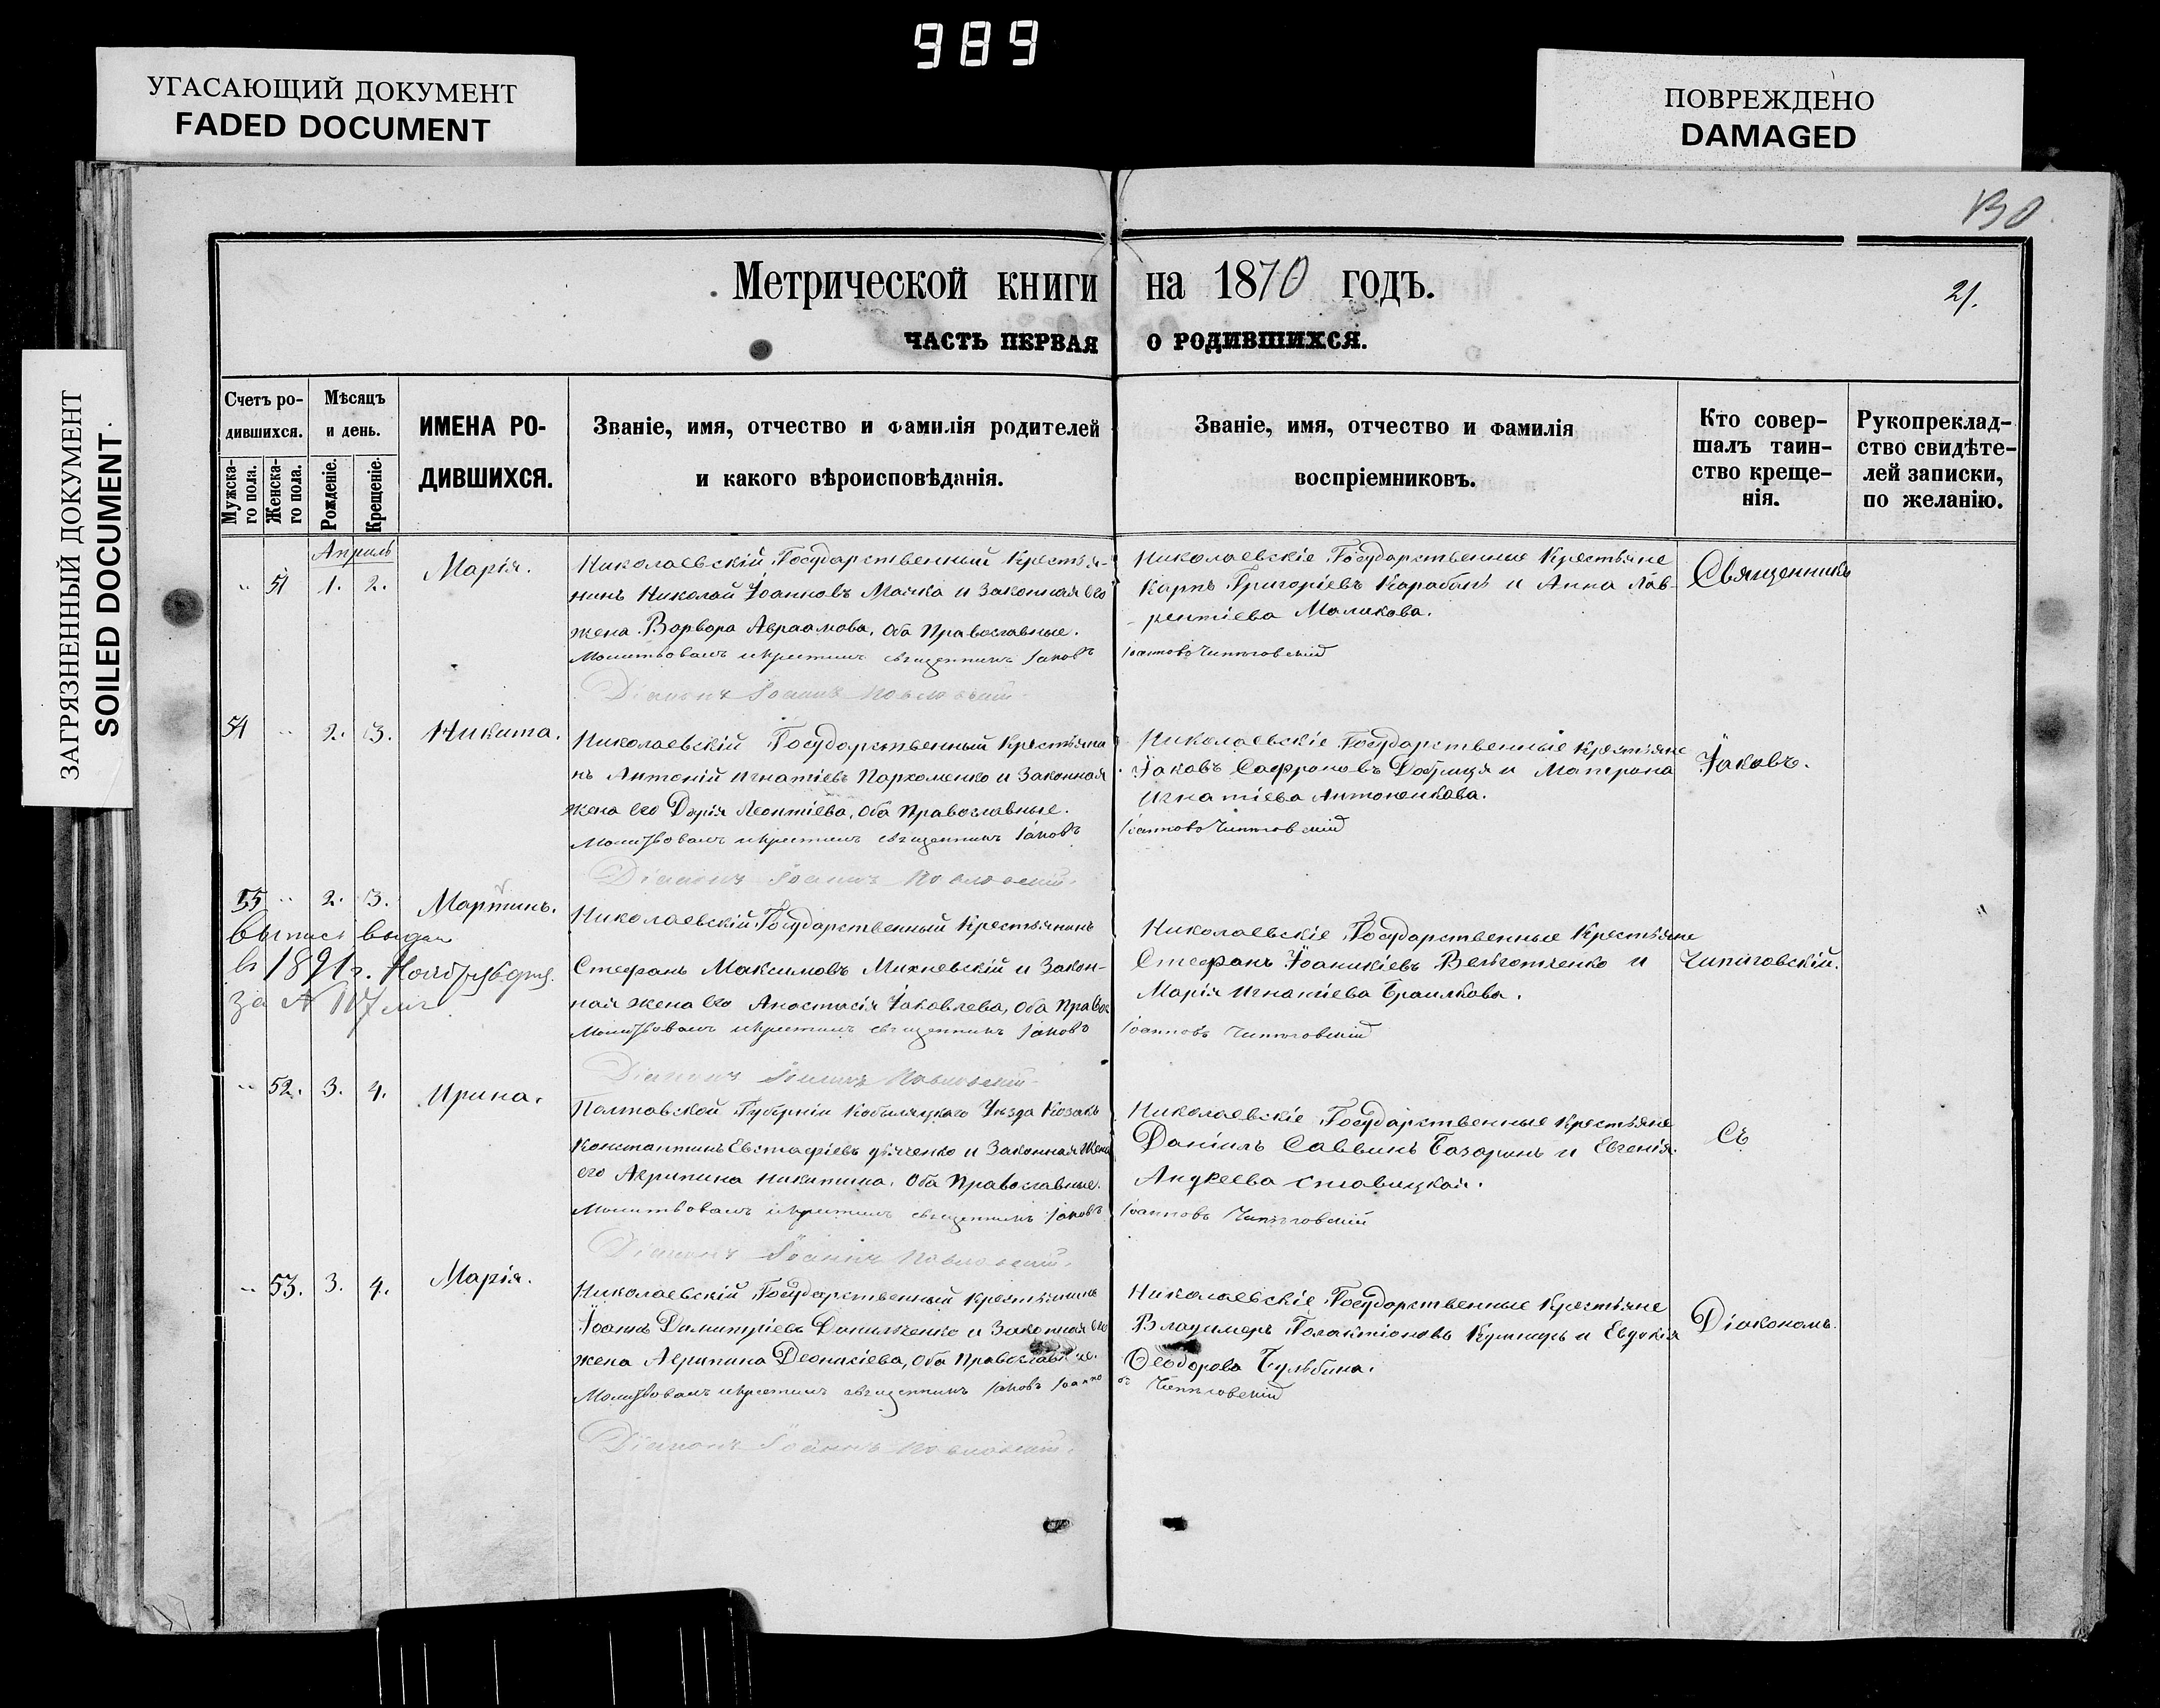 989
УГАСАЮЩИЙ ДОКУМЕНТ
FADED DOCUMENT
ПОВРЕЖДЕНО
DAMAGED
ЗАГРЯЗНЕННЫЙ ДОКУМЕНТ
SOILED DOCUMENT
130
21.
Метрической книги на 1870 годъ.
ЧАСТЬ ПЕРВАЯ О РОДИВШИХСЯ.
Счетъ ро-
дившихся.
Мужска-
го пола.
Женска-
го пола.
Мѣсяцъ
и день.
Рожденіе.
Крещеніе.
ИМЕНА РО-
ДИВШИХСЯ.
Званіе, имя, отчество и фамилія родителей
и какого вѣроисповѣданія.
Званіе, имя, отчество и фамилія
воспріемниковъ.
Кто совер-
шалъ таин-
ство креще-
нія.
Рукоприклад-
ство свидѣте-
лей записки,
по желанію.
Апрель
51 1. 2. Марія.
Николаевскій Государственный Крестья-
нинъ Николай Іоанновъ Мачка и Законная его
жена Варвара Авраамова, оба Православные.
Молитвовалъ и крестилъ священникъ Іаковъ
Діаконъ Іоаннъ Павловскій
Николаевскіе Государственные Крестьяне
Карпъ Григоріевъ Карабанъ и Анна Лав-
рентіева Малакова.
Іоанновъ Чипиговскій
Священникъ
54 2. 3. Никита.
Николаевскій Государственный Крестьяни
нъ Антоній Игнатіевъ Пархоменко и Законная
жена его Дарія Леонтіева, оба Православные.
Молитвовалъ и крестилъ священникъ Іаковъ
Діаконъ Іоаннъ Павловскій.
Николаевскіе Государственные Крестьяне
Іаковъ Сафроновъ Добриця и Матрона
Игнатіева Антоненкова.
Іоанновъ Чипиговскій
Іаковъ.
55 2. 3. Мартинъ.
выпись выдан
въ 1891 г. Ноября
за №
Николаевскій Государственный Крестьянинъ
Стефанъ Максимовъ Михневскій и Закон-
ная жена его Анастасія Іаковлева, оба Правос
Молитвовалъ и крестилъ священникъ Іаковъ
Діаконъ Іоаннъ Павловскій
Николаевскіе Государственные Крестьяне
Стефанъ Іоаникіевъ и
Марія Игнатіева Браилкова.
Іоанновъ Чипиговскій
Чипиговскій.
52. 3. 4. Ирина.
Полтавской Губерніи Кобыляцкаго Уезда Козакъ
Константинъ Евстафіевъ Дяченко и Законная жена
его Агрипина Никитина, оба Православные.
Молитвовалъ и крестилъ священникъ Іаковъ
Діаконъ Іоаннъ Павловскій.
Николаевскіе Государственные Крестьяне
Даніилъ Саввинъ Базаринъ и Евгенія
Андреева Ставицкая.
Іоанновъ Чипиговскій
Съ
53. 3. 4. Марія.
Николаевскій Государственный Крестьянинъ
Іоаннъ Димитріевъ Данильченко и Законная его
жена Агрипина Деонисіева, оба Православные.
Молитвовалъ и крестилъ священникъ Іаковъ Іоанно
Діаконъ Іоаннъ Павловскій.
Николаевскіе Государственные Крестьяне
Владимеръ Галактіоновъ Кушниръ и Евдокія
Ѳеодорова Бульбина.
въ Чипиговскій
Діакономъ.